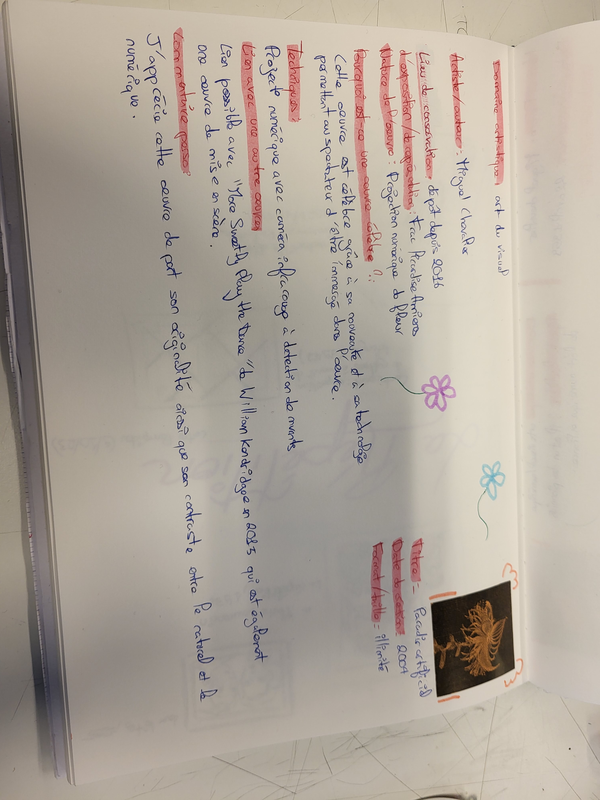 Titre = Paradis artificiel
Date de création = 2004
Format / taille = illimité
Domaine artistique : art du visuel
Artiste/auteur : Miguel Chevalier
Lieu de conservation
d'exposition /
: dépôt depuis 2016
: frac Picardie Amiens
Nature de l'œuvre : Projection numérique de fleur
Pourquoi est-ce une œuvre célèbre ? :
Cette œuvre est célèbre grâce à sa nouveauté et à sa technologie
permettant au spectateur d'être immergé dans l'œuvre.
Techniques :
Projeté numérique avec caméra infrarouge à détection de
Lien avec une autre œuvre
Lien possible avec "More Sweetly play the Dance" de William Kendridge en 2013 qui est également
une œuvre de mise en scène.
Commentaire perso :
J'apprécie cette œuvre de part son originalité ainsi que son contraste entre le naturel et le
numérique.